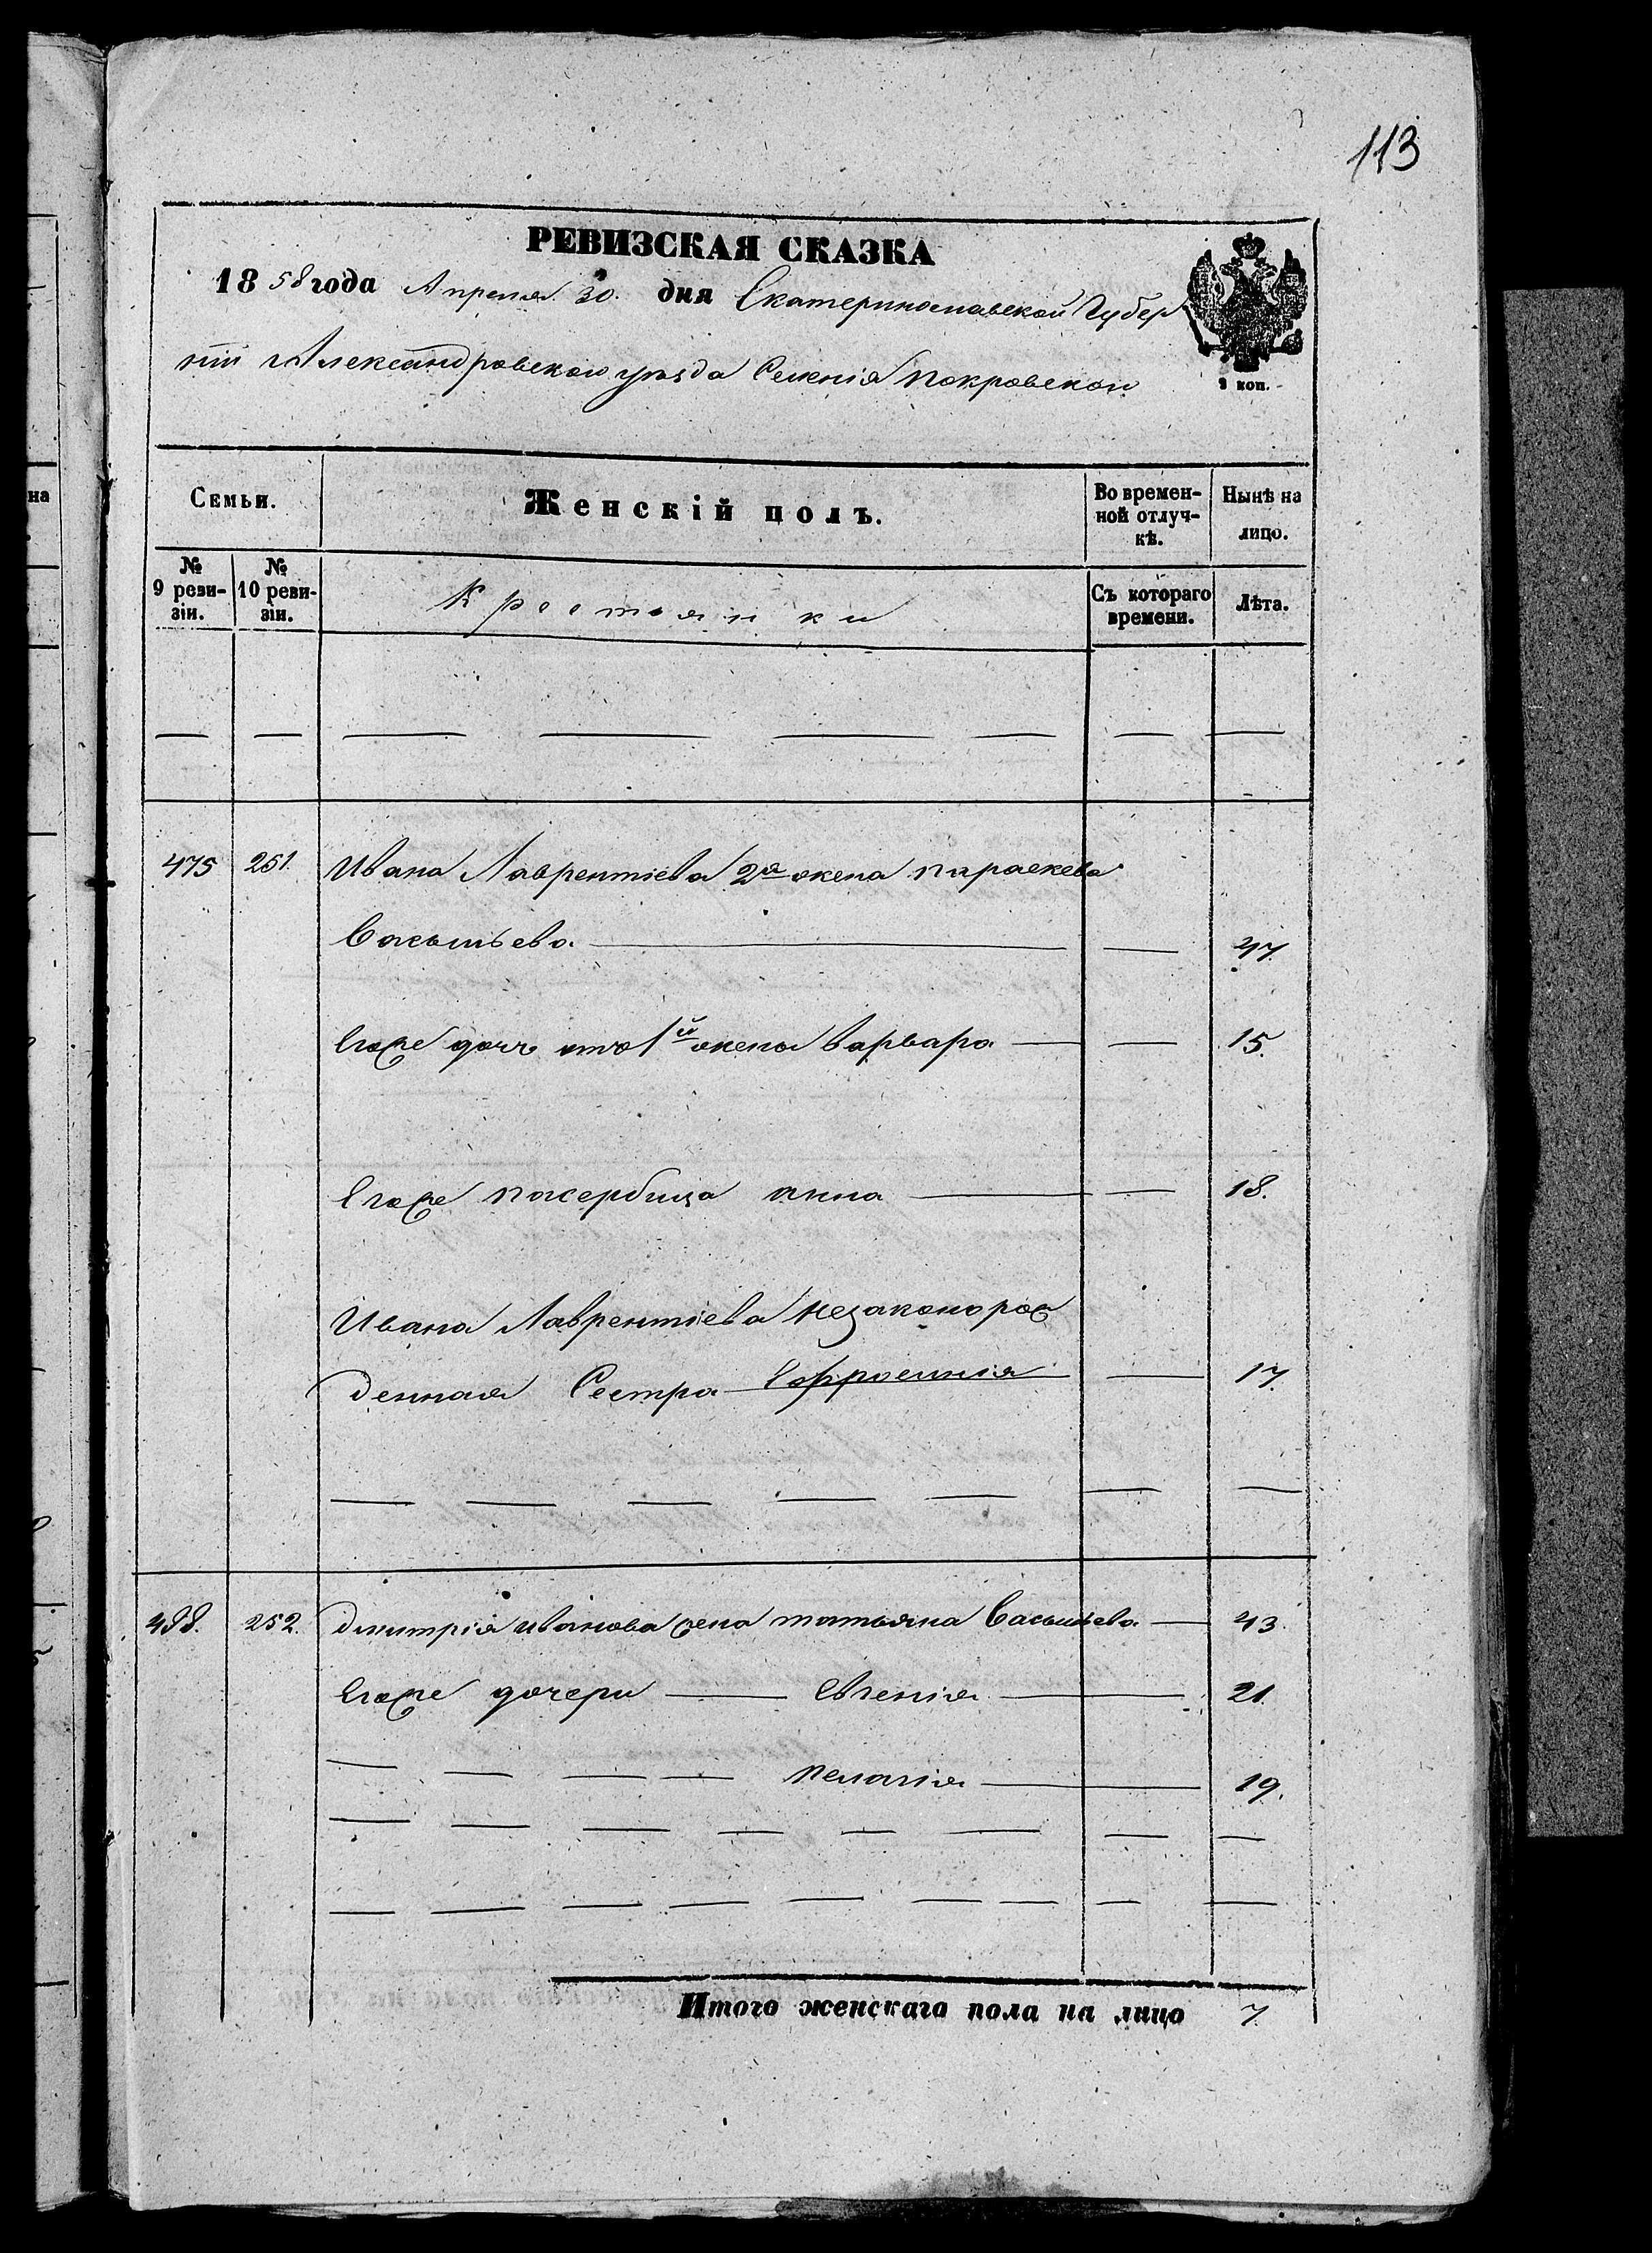 113
РЕВИЗСКАЯ СКАЗКА
1858 года Апреля 30. дня Екатеринославской Губер
ніи Александровского уезда Селенія Покровского
9 коп.
Семьи.
Женскій полъ.
Во времен-
ной отлуч-
кѣ.
Нынѣ на
лицо.
№
9 реви-
зіи.
№
10 реви-
зіи.
Крестьянки
Съ котораго
времени.
Лѣта.
на
475 251. Ивана Лаврентіева 2я жена Параскева
Васильева. 47.
Егоже дочь отъ 1й жены Варвара 15.
Егоже пасербица Анна 18.
Ивана Лаврентіева незаконорож
денная Сестра Ефросинія 17.
488. 252. Дмитрія Иванова жена Татьяна Васильева 43.
Егоже дочери Евгенія 21.
Пелагія 19.
Итого женскаго пола на лицо 7.